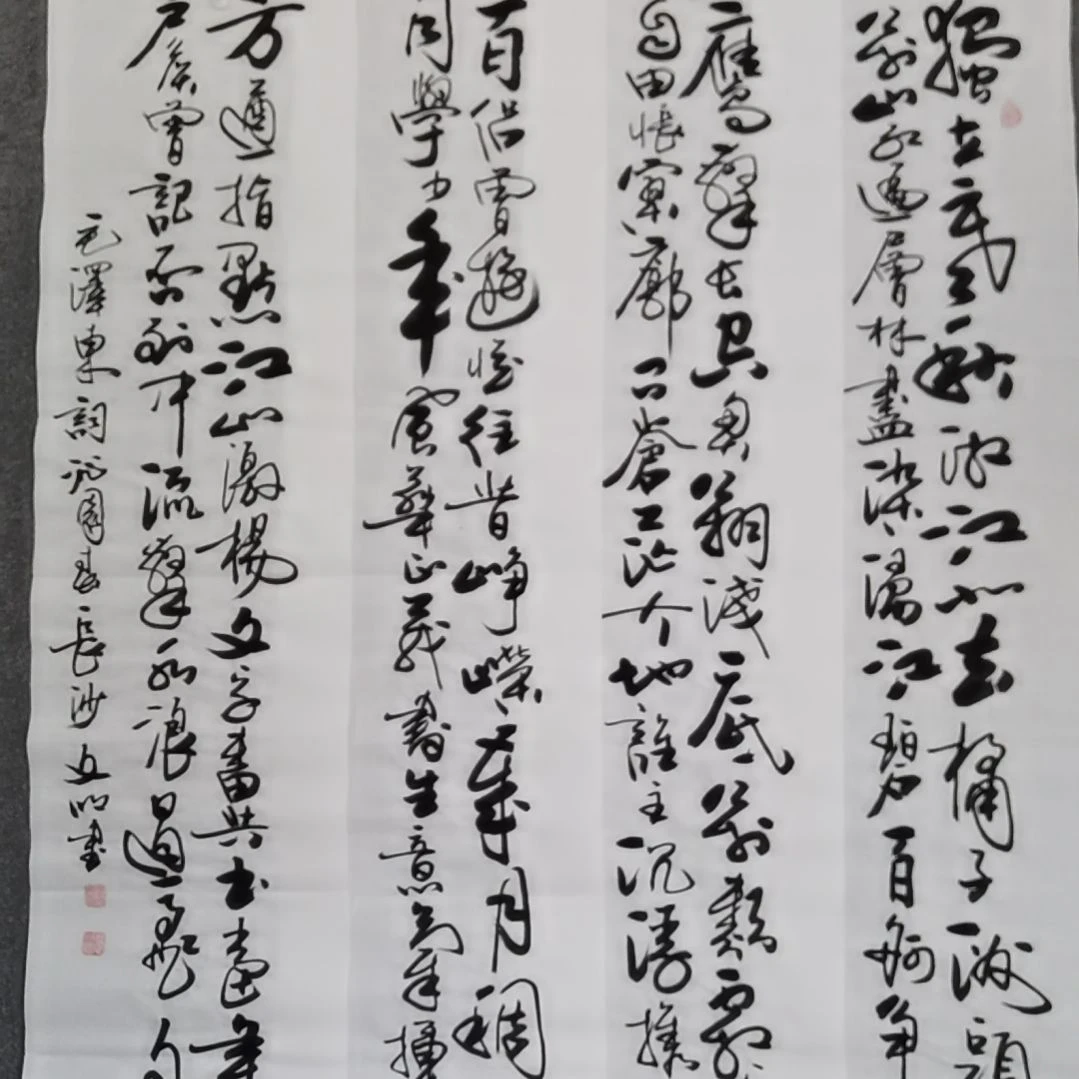 獨立寒秋湘江北去橘子洲頭
萬山红遍層林盡染漫江碧百舸争
鷹擊長空魚翔淺底萬類霜
自由悵寥廓問蒼茫大地誰主沉浮攜
百侣曾遊憶往昔崢嶸歲月稠
同學少年風華正茂書生意氣揮
方遒指點江山激揚文字糞土當年
户侯曾記否到中流擊水浪遏飛舟
毛澤東詞沁園春長沙文明書